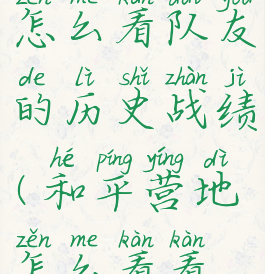 zěn me kàn duì yǒu
怎么看队友
de lì shǐ zhàn jì
的历史战绩
hé píng yíng dì
(和平营地
zěn me kàn kàn
怎么看看